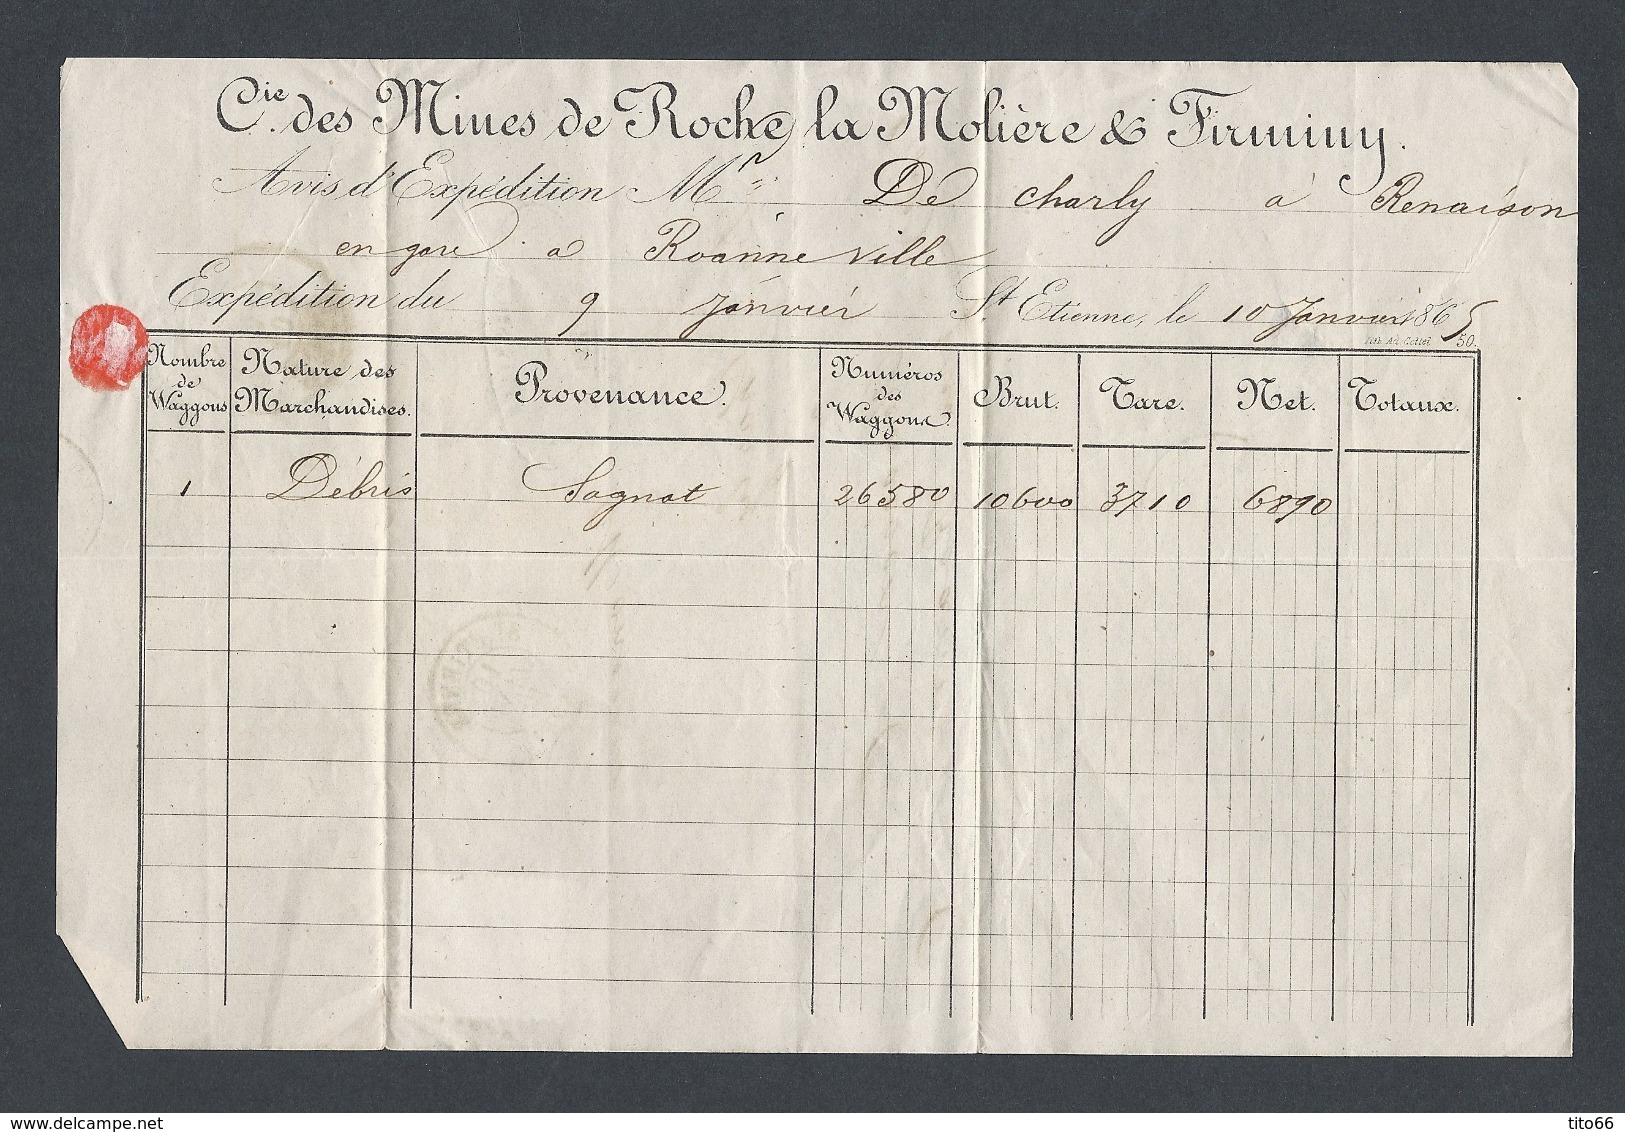 Cie. des Mines de Roche la Molière & Firminy.
Avis d'Expédition Mr De charly à Renaison
en gare a Roanne ville
Expédition du 9 Janvier St Etienne, le 10 Janvier 1865
50.
Nombre de Waggons Nature des Marchandises. Provenance. Numéros des Waggons Brut. Tare. Net. Totaux.
1 Débris Sagnat 26580 10600 3710 6890
delcampe.net
tito66